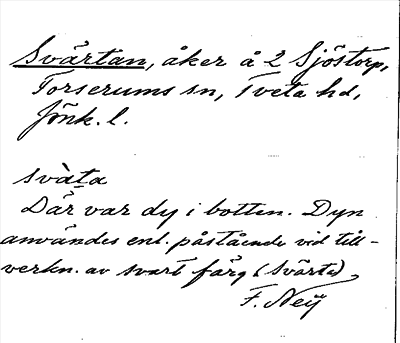 Svärtan, åker å 2 Sjöstorp,
Torserums sn, Tveta hd,
Jönk. l.
svàta
Där var dy i botten. Dyn
användes enl. påstående vid till-
verkn. av svart färg (svärta)
F. Ney